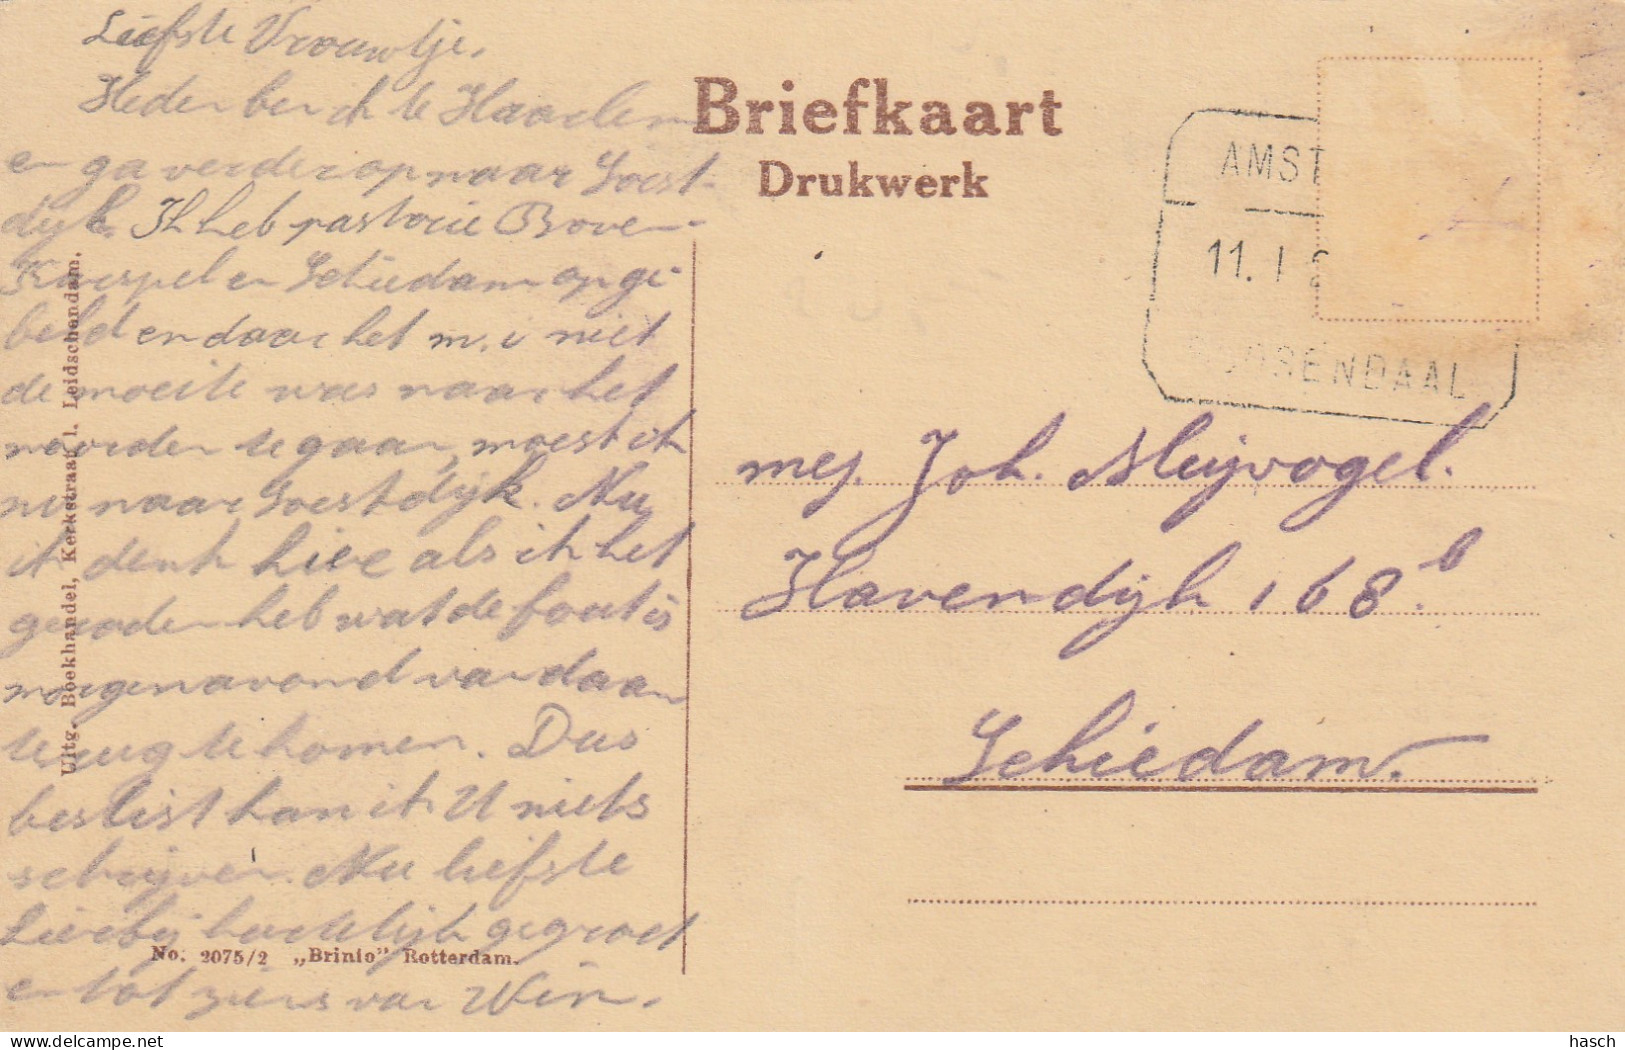 Liefste Vrouwtje.
Heden ben ik te Haarlem
en ga verder op naar Soest-
dijk. Ik heb pastorie Boven-
Kerspel en Schiedam opge-
beld en daar het m.i niet
de moeite was naar het
noorden te gaan, moest ik
nu naar Soestdijk. Nu
ik denk lieve als ik het
geraden heb wat de fout is
morgenavond vandaar
terug te komen. Dus
beslist kan ik U niets
schrijven. Nu liefste
Lieveling hartelijk gegroet
en tot ziens van Wim.
Uitg. Boekhandel, Kerkstraat 1. Leidschendam.
No. 2075/2 „Brinio" Rotterdam.
Briefkaart
Drukwerk
AMST
11. I 2
ROOSENDAAL
mej. Joh. Sleijvogel.
Havendijk 168.b
Schiedam.
hasch